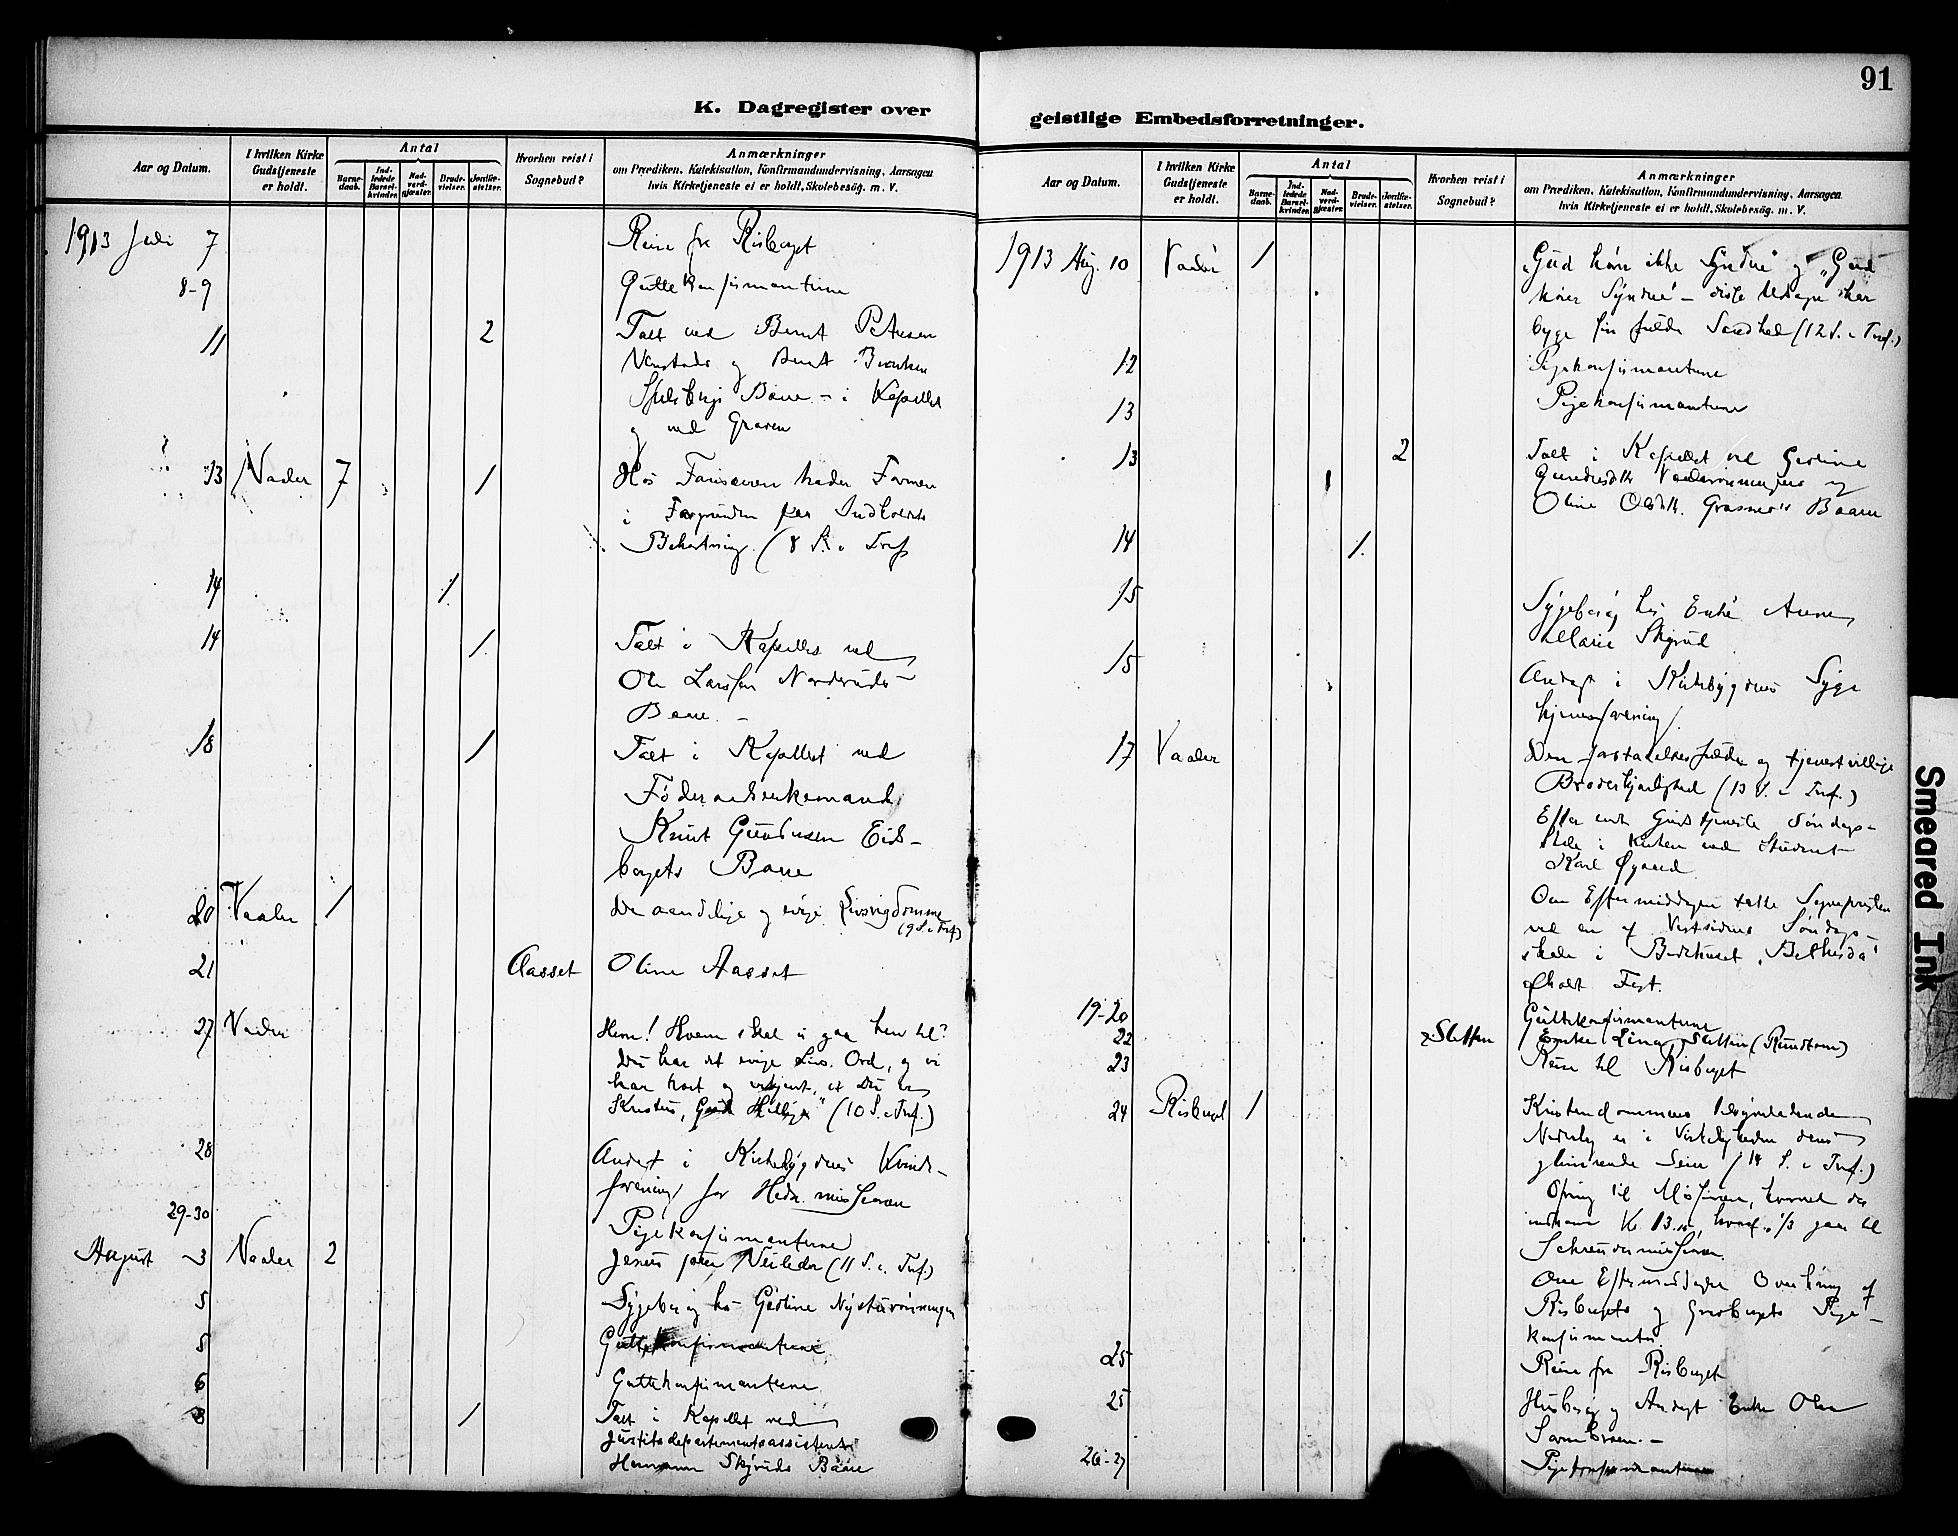 91
K. Dagregister over
geistlige Embedsforretninger.
Aar og Datum.
I hvilken Kirke Gudstjeneste er holdt.
Antal
Barne-daab.
Ind-ledede Barsel-kvinder.
Nad-verd-gjæster.
Brude-vielser.
Jordfæ-stelser.
Hvorhen reist i Sognebud?
Anmærkninger
om Prædiken, Katekisation, Konfirmandundervisning, Aarsagen
hvis Kirketjeneste ei er holdt, Skolebesøg. m. V.
1913 Juli 7 Reise fra Risberget
8-9 Guttekonfirmanterne
11 2 Talt ved Bernt
og Bernt
Baare - i Kapellet
og ved Graven
13 Vaaler 7 1 Hos Farisæeren træder Formen
i Forgrunden
(8 S. e. Tref
14 1
14 1 Talt i Kapellet ved
Ole Larssen Norderuds
Baare. -
18 1 Talt i Kapellet ved
Føderaadsenkemand
Knut Gundersen Eids-
bergets Baare
20 Vaaler 1 De aandelige og evige Livsrigdomme
(9 S. e. Tref)
21 Aasset Oline Aasset
27 Vaaler Herre! Hvem skal vi gaa hen til?
Du har det evige Livs Ord, og vi
har troet og erkjent, at Du er
Kristus, Guds Hellige" (10 S. e. Tref.)
28 Andagt i Kirkebygdens Kvinde-
forening for Hedningemissionen
29-30 Pigekonfirmanterne
August 3 Vaaler 2 Jesus som Veileder (11 S. e. Tref.)
5 Sygebesøg hos Gustine Nysturønningen
5 Guttekonfirmanterne
6 Guttekonfirmanterne
8 1 Talt i Kapellet ved
Justitsdepartementsassistent
Hermann Skyruds Baare
Aar og Datum.
I hvilken Kirke Gudstjeneste er holdt.
Antal
Barne-daab.
Ind-ledede Barsel-kvinder.
Nad-verd-gjæster.
Brude-vielser.
Jordfæ-stelser.
Hvorhen reist i Sognebud?
Anmærkninger
om Prædiken, Katekisation, Konfirmandundervisning, Aarsagen
hvis Kirketjeneste ei er holdt, Skolebesøg. m. V.
1913 Aug. 10 Vaaler 1 "Gud hører ikke Syndere" og "Gud
hører Syndere" - disse Udsagn har
begge sin fulde Sandhed (12 S. e. Tref.)
12 Pigekonfirmanterne
13 Pigekonfirmanterne
13 2 Talt i Kapellet ved Gustine
og
Oline Olsdtr. Baarer
14 1
15 Sygebesøg hos Enke Anne
Marie Skyrud
15 Andagt i Kirkebygdens Syge
17 Vaaler Den og tjenestvillige
Broderkjærlighed (13 S. e. Tref.)
Efter endt Gudstjeneste Søndags-
skole i Kirken ved Student
Karl Øgaard
Om Eftermiddagen talte Sognepresten
ved en af Vestsidens Søndags-
skole i Bedehuset "Bethesda"
afholdt Fest.
19-20 Guttekonfirmanterne
22 Sletten Enke Lina Sletten (Rundtom)
23 Reise til Risberget
24 Risberget 1 Kristendommens tilsyneladende
Nederlag er i Virkeligheden dens
glimrende Seier (14 S. e. Tref.)
Ofring til Missionen, hvorved der
indkom Kr. 13.10, hvoraf 1/3 gaar til
Schreudermissionen
Om Eftermiddagen Overhøring af
Risbergets og Gravbergets Pige-
konfirmanter.
25 Reise fra Risberget
25 Husbesøg og Andagt Enke Olea
26-27 Pigekonfirmanterne
Smeared Ink